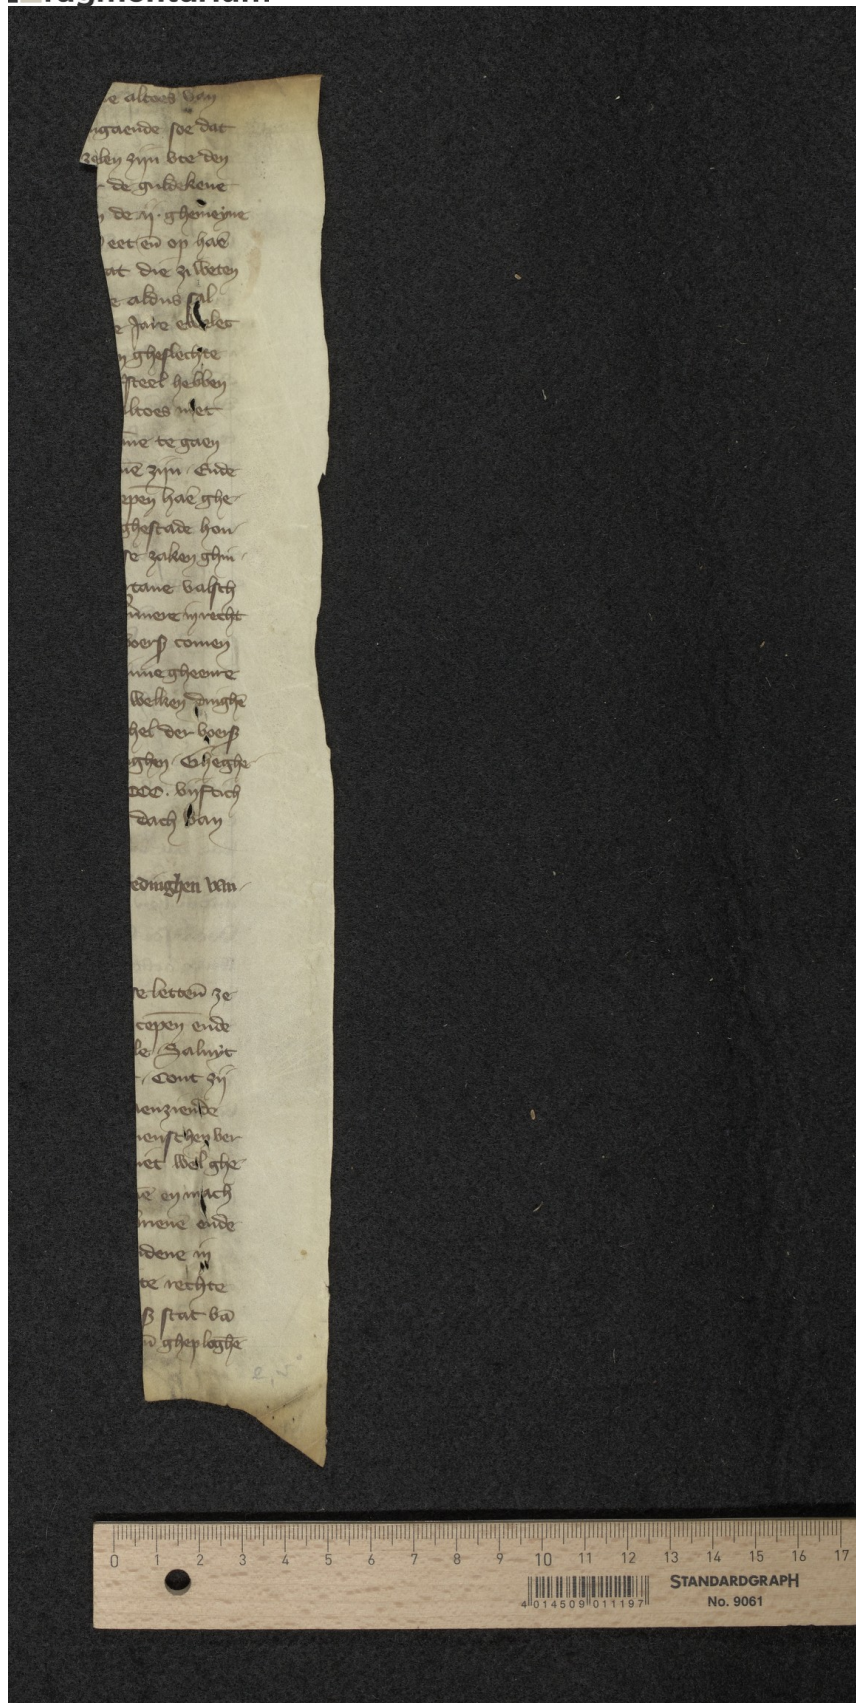 ragmentarium
e altoes van
ngaende soe dat
zelen zijn vte den
de guldekene
de ij. ghemeyne
eet en̄ op haē
at die zi weten
e aldus sal
e Jare
n gheslechte
steel hebben
ltoes met
me te gaen
nē zijn. Ende
epen̄ haē ghe-
ghestade hou-
se zaken ghin-
tane valsch
in recht
voers comen
gheenre
welken dinghē
hel der voers
ghen. Gheghe-
CCC. vijftich
dach van
edinghen van-
se letten̄ ze
cepen̄ ende
le Saluyt
Cont zij
enziende
enschen ver
et wel ghe
ē en mach
nene ende
dene in
te rechte
stat vā
n̄ gheploghē
2, v
0 1 2 3 4 5 6 7 8 9 10 11 12 13 14 15 16 17
4 014509 011197
STANDARDGRAPH
No. 9061